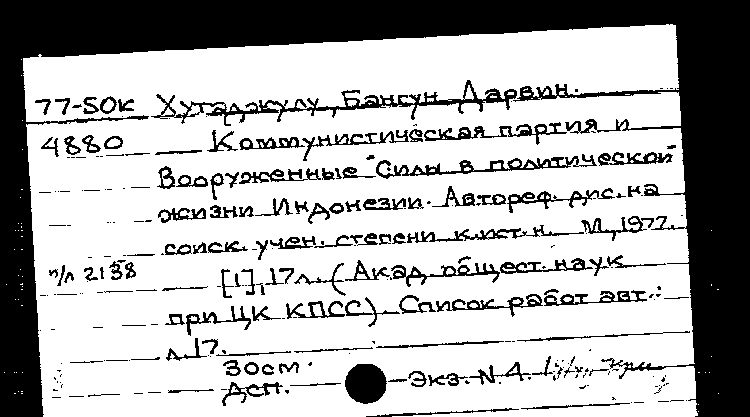 77-50к Хутаджулу, Бангун Дарвин.
4880 Коммунистическая партия и
Вооруженные Силы в политической
жизни Индонезии. Автореф. дис. на
соиск. учен. степени к.ист.н. М., 1977.
п/л 2138 [1], 17л. (Акад. общест. наук
при ЦК КПСС). Список работ авт.:
л.17.
30см.
Дсп. Экз. N.4.